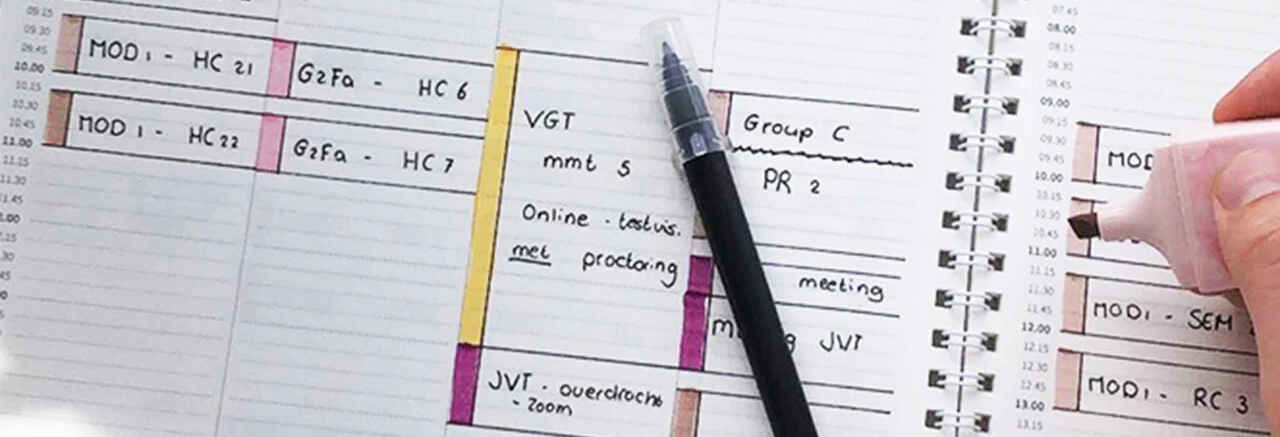 09.15
09.30
09.45
10.00
10.15
10.30
10.45
11.00
11.15
11.30
MOD 1 - HC 21
MOD 1 - HC 22
G2Fa - HC 6
G2Fa - HC 7
VGT
mmt 5
Online - testvis.
met proctoring
JVT - overdracht
- Zoom
Group C
PR 2
meeting
JVT
07.45
08.00
08.15
08.30
08.45
09.00
09.15
09.30
09.45
10.00
10.15
10.30
10.45
11.00
11.15
11.30
11.45
12.00
12.15
12.30
12.45
13.00
13.15
MOD
MOD1 - SEM
MOD1 - RC 3